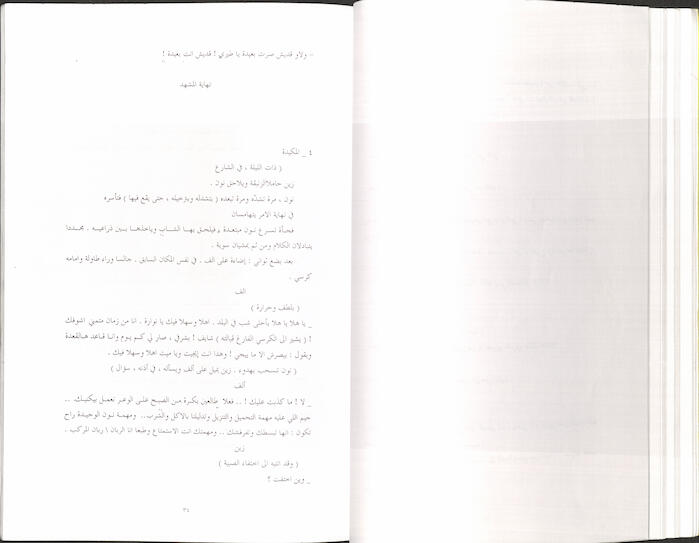 – ولاو قديش صرت بعيدة يا طيري ! قديش انت بعيدة !
نهاية المشهد
٤ _ المكيدة
( ذات الليلة ، في الشارع
زين حاملا الزنبقة ويلاحق نون .
نون ، مرة تشدّه ومرة تبعده ( بتشدله وبترخيله ، حتى يقع فيها ) فتأسره
في نهاية الامر يتهامسان
فجأة تسرع نون مبتعدة فيلحق بها الشاب وياخذها بين ذراعيه . مجددا
يتبادلان الكلام ومن ثم يمشيان سوية .
بعد بضع ثواني : إضاءة على الف . في نفس المكان السابق . جالسا وراء طاولة وامامه
كرسي .
الف
( بلطف وحرارة )
_ يا هلا يا هلا بأحلى شب في البلد . اهلا وسهلا فيك يا نوارة . انا من زمان متمني اشوفك
! ( يشير الى الكرسي الفارغ قبالته ) شايف ! بشرفي ، صار لي كم يوم وانا قاعد هالقعدة
وبقول : بيصرش الا ما ييجي ! وهذا انت إلجيت ويا ميت اهلا وسهلا فيك .
( نون تنسحب بهدوء . زين يميل على ألف ويسأله ، في أذنه ، سؤال )
ألف
_ لا ! ما كذبت عليك ! .. فعلا طالعين بكرة من الصبح على الوعر نعمل بيكنيك ..
جيم اللي عليه مهمة التحميل والتنزيل وتدليلنا بالاكل والشرب .. ومهمة نون الوحيدة راح
تكون : انها تبسطك وتفرفشك .. ومهمتك انت الاستمتاع وطبعا انا الربان \ ربان المركب ..
زين
( وقد انتبه الى اختفاء الصبية )
_ وين اختفت ؟
٣٤